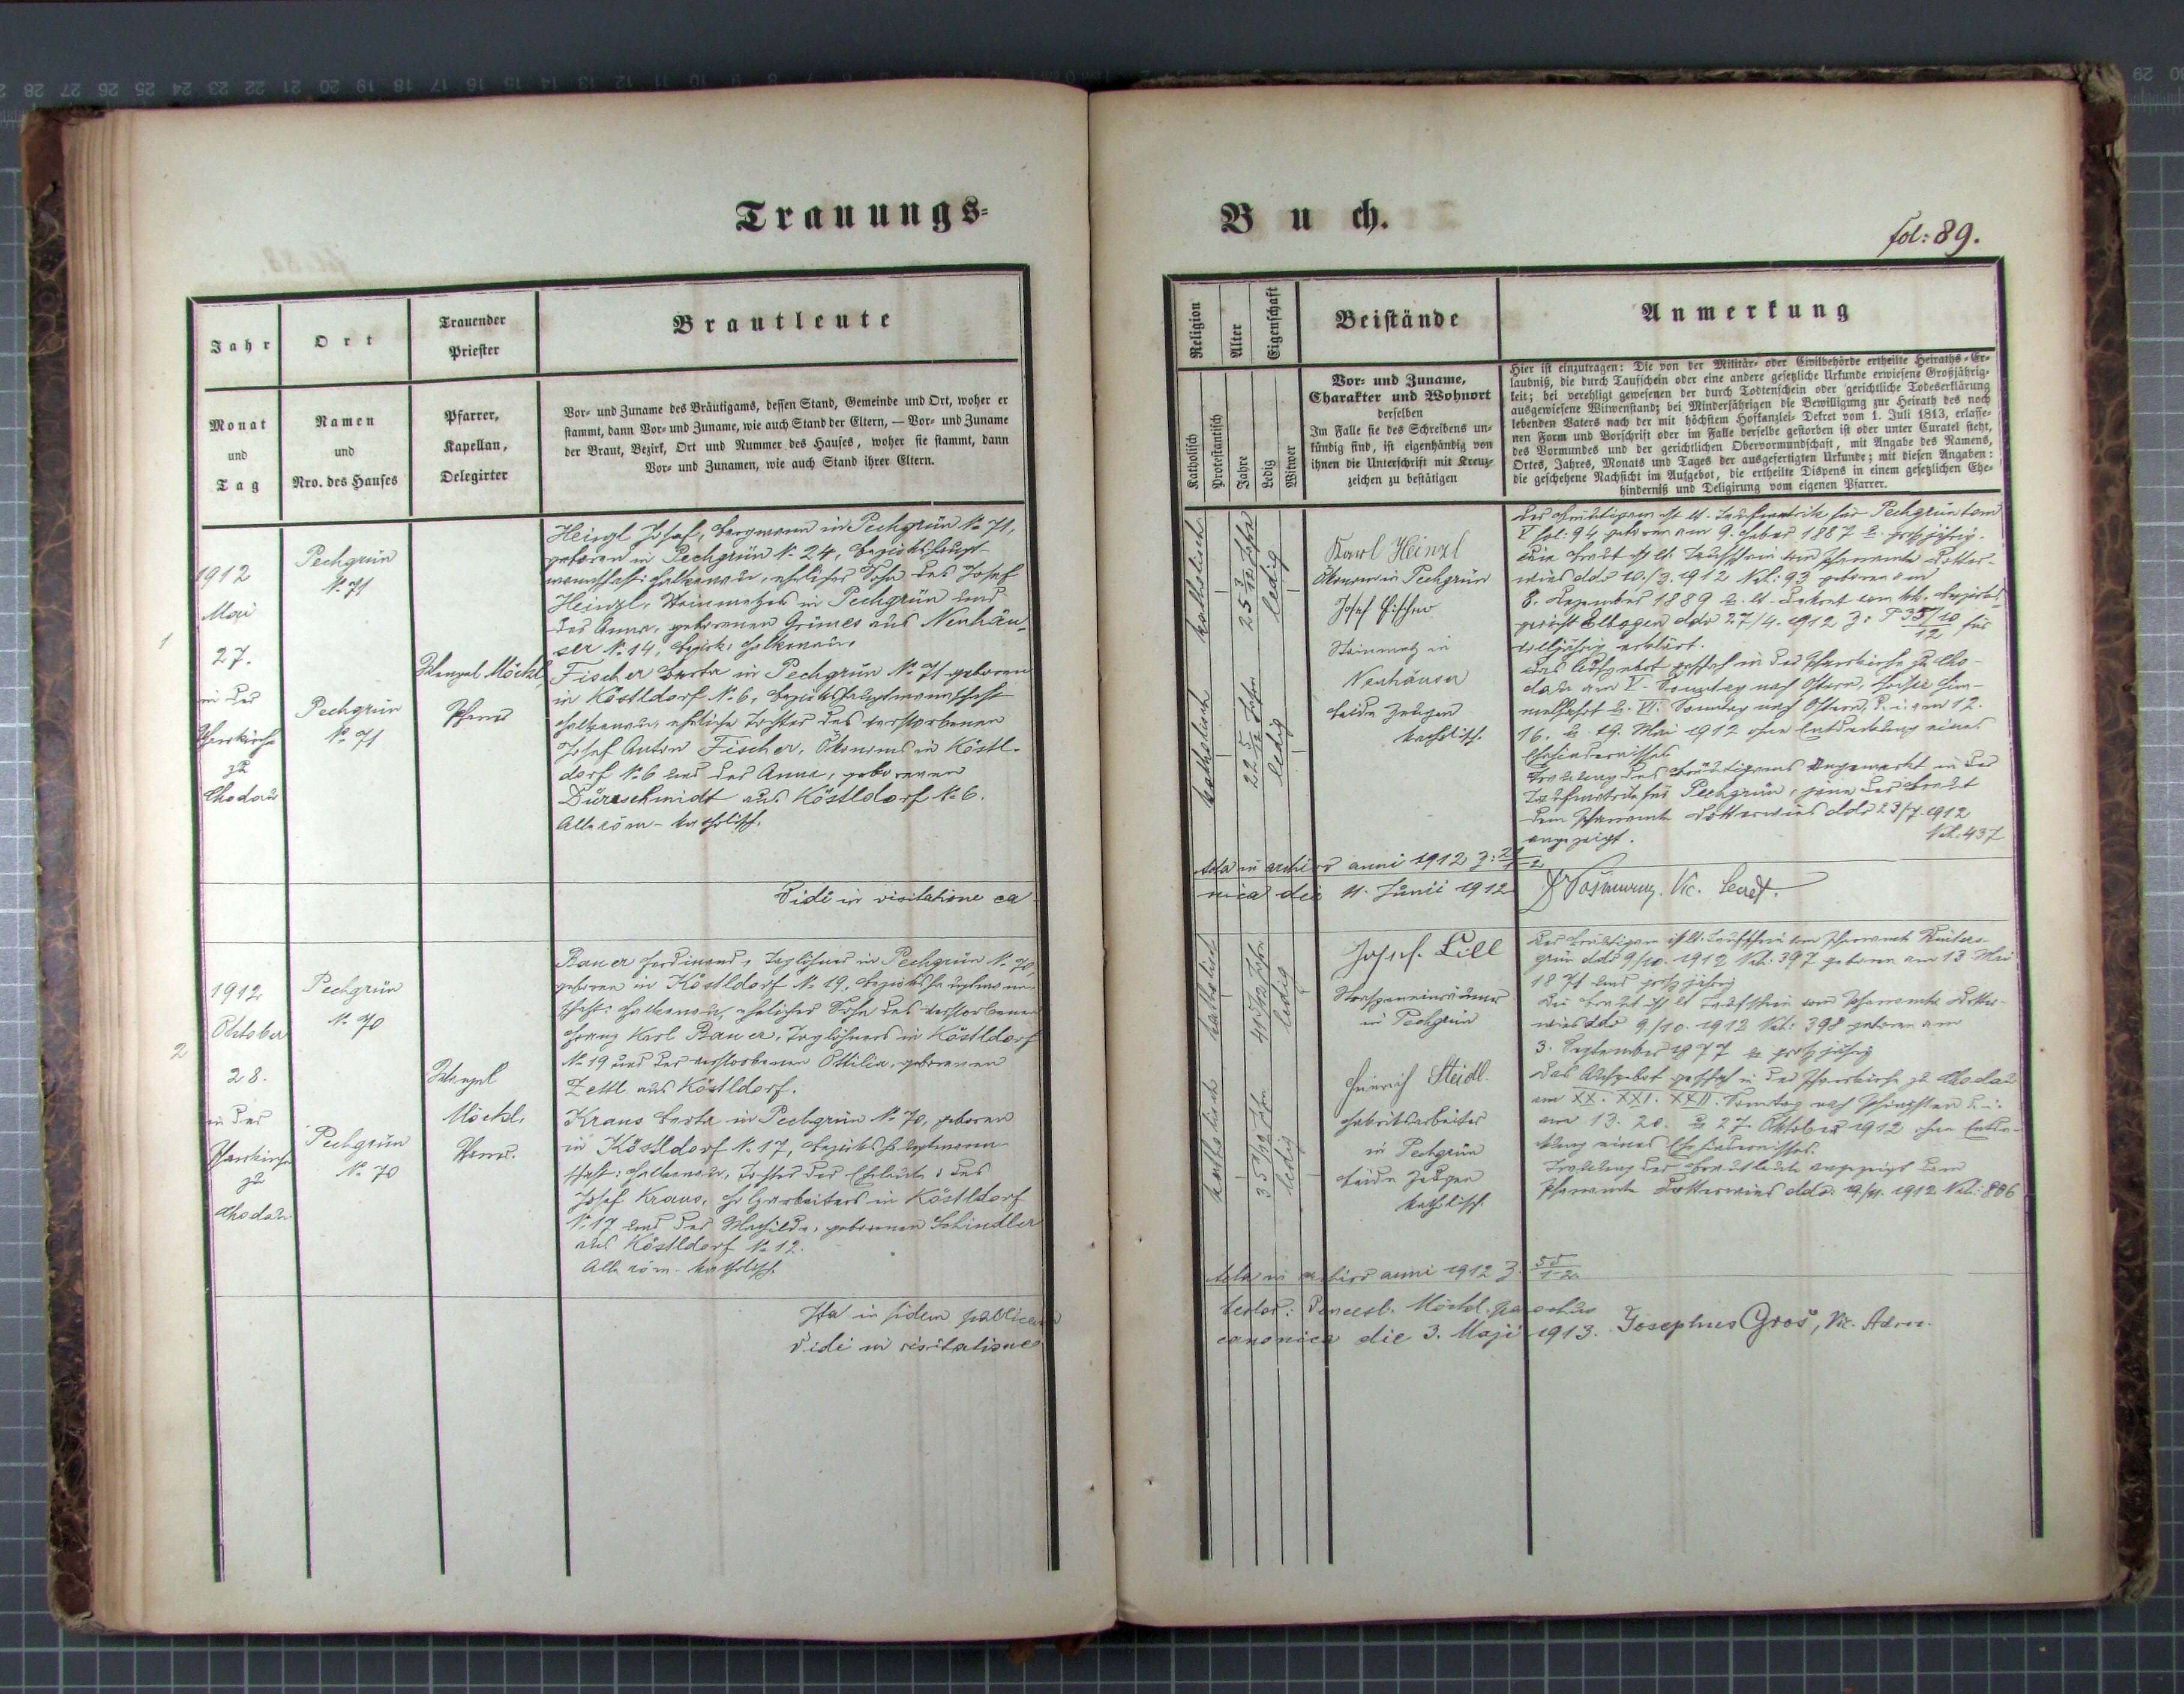 Trauungs-
Buch.
fol: 89.
Jahr
Ort
Trauender
Priester
Brautleute
Monat
und
Tag
Namen
und
Nro. des Hauses
Pfarrer,
Kapellan,
Delegirter
Vor- und Zuname des Bräutigams, dessen Stand, Gemeinde und Ort, woher er
stammt, dann Vor- und Zuname, wie auch Stand der Eltern, — Vor- und Zuname
der Braut, Bezirk, Ort und Nummer des Hauses, woher sie stammt, dann
Vor- und Zunamen, wie auch Stand ihrer Eltern.
1
1912
Mai
27.
in der
Pfarrkirche
zu
Chodau
Pechgrün
No 71
Pechgrün
No 71
Wenzel Möckl,
Pfarrer
Heinzl Josef, Bergmann in Pechgrün No 71,
geboren in Pechgrün No 24, Bezirkshaupt-
mannschaft: Falkenau, ehelicher Sohn des Josef
Heinzl, Steinmetzes in Pechgrün und
der Anna, geborenen Grimes aus Neuhäu-
ser No 14, Bezirk: Falkenau.
Fischer Berta in Pechgrün No 71 geboren
in Köstldorf No 6, Bezirkshauptmannschaft
Falkenau, eheliche Tochter des verstorbenen
Josef Anton Fischer, Ökonoms in Köstl-
dorf No 6 und der Anna, geborenen
Dürrschmidt aus Köstldorf No 6.
Alle röm-katholisch.
Vidi in visitatione ca-
2
1912
Oktober
28.
in der
Pfarrkirche
zu
Chodau.
Pechgrün
No 70
Pechgrün
No 70
Wenzel
Möckl,
Pfarrer.
Bauer Ferdinand, Taglöhner in Pechgrün No 70,
geboren in Köstldorf No 19, Bezirkshauptmann-
schaft: Falkenau, ehelicher Sohn des verstorbenen
Franz Karl Bauer, Taglöhners in Köstldorf
No 19 und der verstorbenen Ottilia, geborenen
Zettl aus Köstldorf.
Kraus Berta in Pechgrün No 70, geboren
in Köstldorf No 17, Bezirkshauptmann-
schaft: Falkenau, Tochter der Eheleute: des
Josef Kraus, in Köstldorf
No 17 und der Mathilde, geborenen Schindler
aus Köstldorf No 12.
Alle röm-katholisch.
Ita in fidem publicam
Vidi in visitatione
Religion
Alter
Eigenschaft
Beistände
Anmerkung
Katholisch
Protestantisch
Jahre
Ledig
Witwer
Vor- und Zuname,
Charakter und Wohnort
derselben
Im Falle sie des Schreibens un-
kündig sind, ist eigenhändig von
ihnen die Unterschrift mit Kreuz-
zeichen zu bestätigen
Hier ist einzutragen: Die von der Militär- oder Civilbehörde ertheilte Heiraths-Er-
laubniß, die durch Taufschein oder eine andere gesetzliche Urkunde erwiesene Großjährig-
keit; bei verehligt gewesenen der durch Todtenschein oder gerichtliche Todeserklärung
ausgewiesene Witwenstand; bei Minderjährigen die Bewilligung zur Heirath des noch
lebenden Vaters nach der mit höchstem Hofkanzlei-Dekret vom 1. Juli 1813, erlasse-
nen Form und Vorschrift oder im Falle derselbe gestorben ist oder unter Curatel steht,
des Vormundes und der gerichtlichen Obervormundschaft, mit Angabe des Namens,
Ortes, Jahres, Monats und Tages der ausgefertigten Urkunde; mit diesen Angaben:
die geschehene Nachsicht im Aufgebot, die ertheilte Dispens in einem gesetzlichen Ehe-
hinderniß und Deligirung vom eigenen Pfarrer.
katholisch
25 3/12 Jahre
ledig
katholisch
22 5/12 Jahre
ledig
Karl Heinzl
Ökonom in Pechgrün
Josef Fischer
Steinmetz in
Neuhäuser
beide Zeugen
katholisch.
Der Bräutigam ist lt. Taufmatrik für Pechgrün tom
V fol: 94 geboren am 9. 1887 u. großjährig.
Die Braut ist lt. Taufschein vom Pfarramte Lotter-
wies ddo 10./3. 1912 No: 93 geboren am
8. Dezember 1889 u. lt. Dekret vom kk. Bezirks-
gericht Elbogen ddo 27/4. 1912 Z: P 35/10/12 für
volljährig erklärt.
Das Aufgebot geschah in der Pfarrkirche zu Cho-
dau am V. Sonntag nach Ostern, Christi Him-
melfahrt u. VI. Sonntag nach Ostern, d. i. am 12.
16. u. 19. Mai 1912 ohne Entdeckung eines
Ehehindernisses.
Trauung des Bräutigams angemerkt in der
Taufmatrik für Pechgrün, jene der Braut
dem Pfarramte Lotterwies ddo 23/7. 1912
angezeigt. No: 437
Acta in archivo anni 1912 Z: 21/1-2
nica die 11. Junii 1912
Vic. Secret.
katholisch
41 5/12 Jahre
ledig
katholisch
35 1/12 Jahre
ledig
Josef Lill
Straßeneinräumer
in Pechgrün
Heinrich Steidl.
Fabriksarbeiter
in Pechgrün
beide Zeugen
katholisch.
Der Bräutigam ist lt. Taufschein vom Pfarramte
grün ddo 9/10. 1912 No: 397 geboren am 13 Mai
1871 und großjährig
Die Braut ist lt Taufschein vom Pfarramte Lotter-
wies ddo 9/10. 1912 No: 398 geboren am
3. September 1977 u. großjährig
Das Aufgebot geschah in der Pfarrkirche zu Chodau
am XX. XXI. XXII. Sonntag nach Pfingsten d. i.
am 13. 20. u 27. Oktober 1912 ohne Entde-
ckung eines Ehehindernisses.
Trauung der Brautleute angezeigt dem
Pfarramte Lotterwies ddo: 19./11. 1912 No: 806
Acta in archivo anni 1912 Z. 55/1-2
testor: Vencesl. Möckl, parochus
canonica die 3. Maji 1913. Josephus Groš, Vic. Adm.